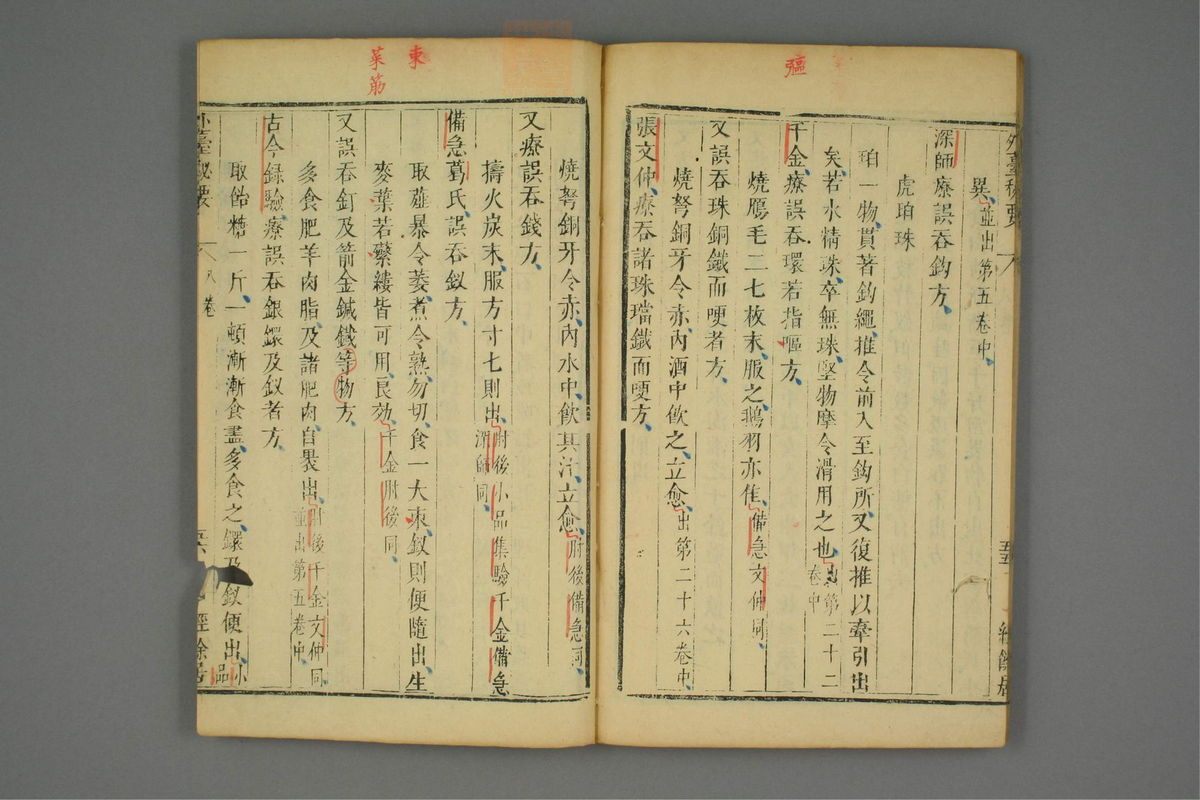 彄
異並出第五卷中
深師療誤吞鈎方
虎珀珠
珀一物貫著鈎繩推令前入至鈎所又復推以牽引出
矣若水精珠卒無珠堅物摩令滑用之也出第二十二卷中
千金療誤吞環若指彄方
燒鴈毛二七枚末服之鵝羽亦佳備急文仲同
又誤吞珠銅鐵而哽者方
燒弩銅牙令赤內酒中飲之立愈出第二十六卷中
張文仲療吞諸珠璫鐵而哽方
東
菜筋
燒弩銅牙令赤內水中飲其汁立愈肘後備急同
又療誤吞錢方
擣火炭末服方寸匕則出肘後小品集驗千金備急深師同
備急葛氏誤吞釵方
取薤暴令萎煮令熟勿切食一大束釵則便隨出生
麥葉若虆縷皆可用良効千金肘後同
又誤吞釘及箭金鍼鐵等物方
多食肥羊肉脂及諸肥肉自褁出肘後千金文仲同並出第五卷中
古今錄驗療誤吞銀鐶及釵者方
取飴糖一斤一頓漸漸食盡多食之鐶及釵便出小品
外臺秘要
八卷
經餘居